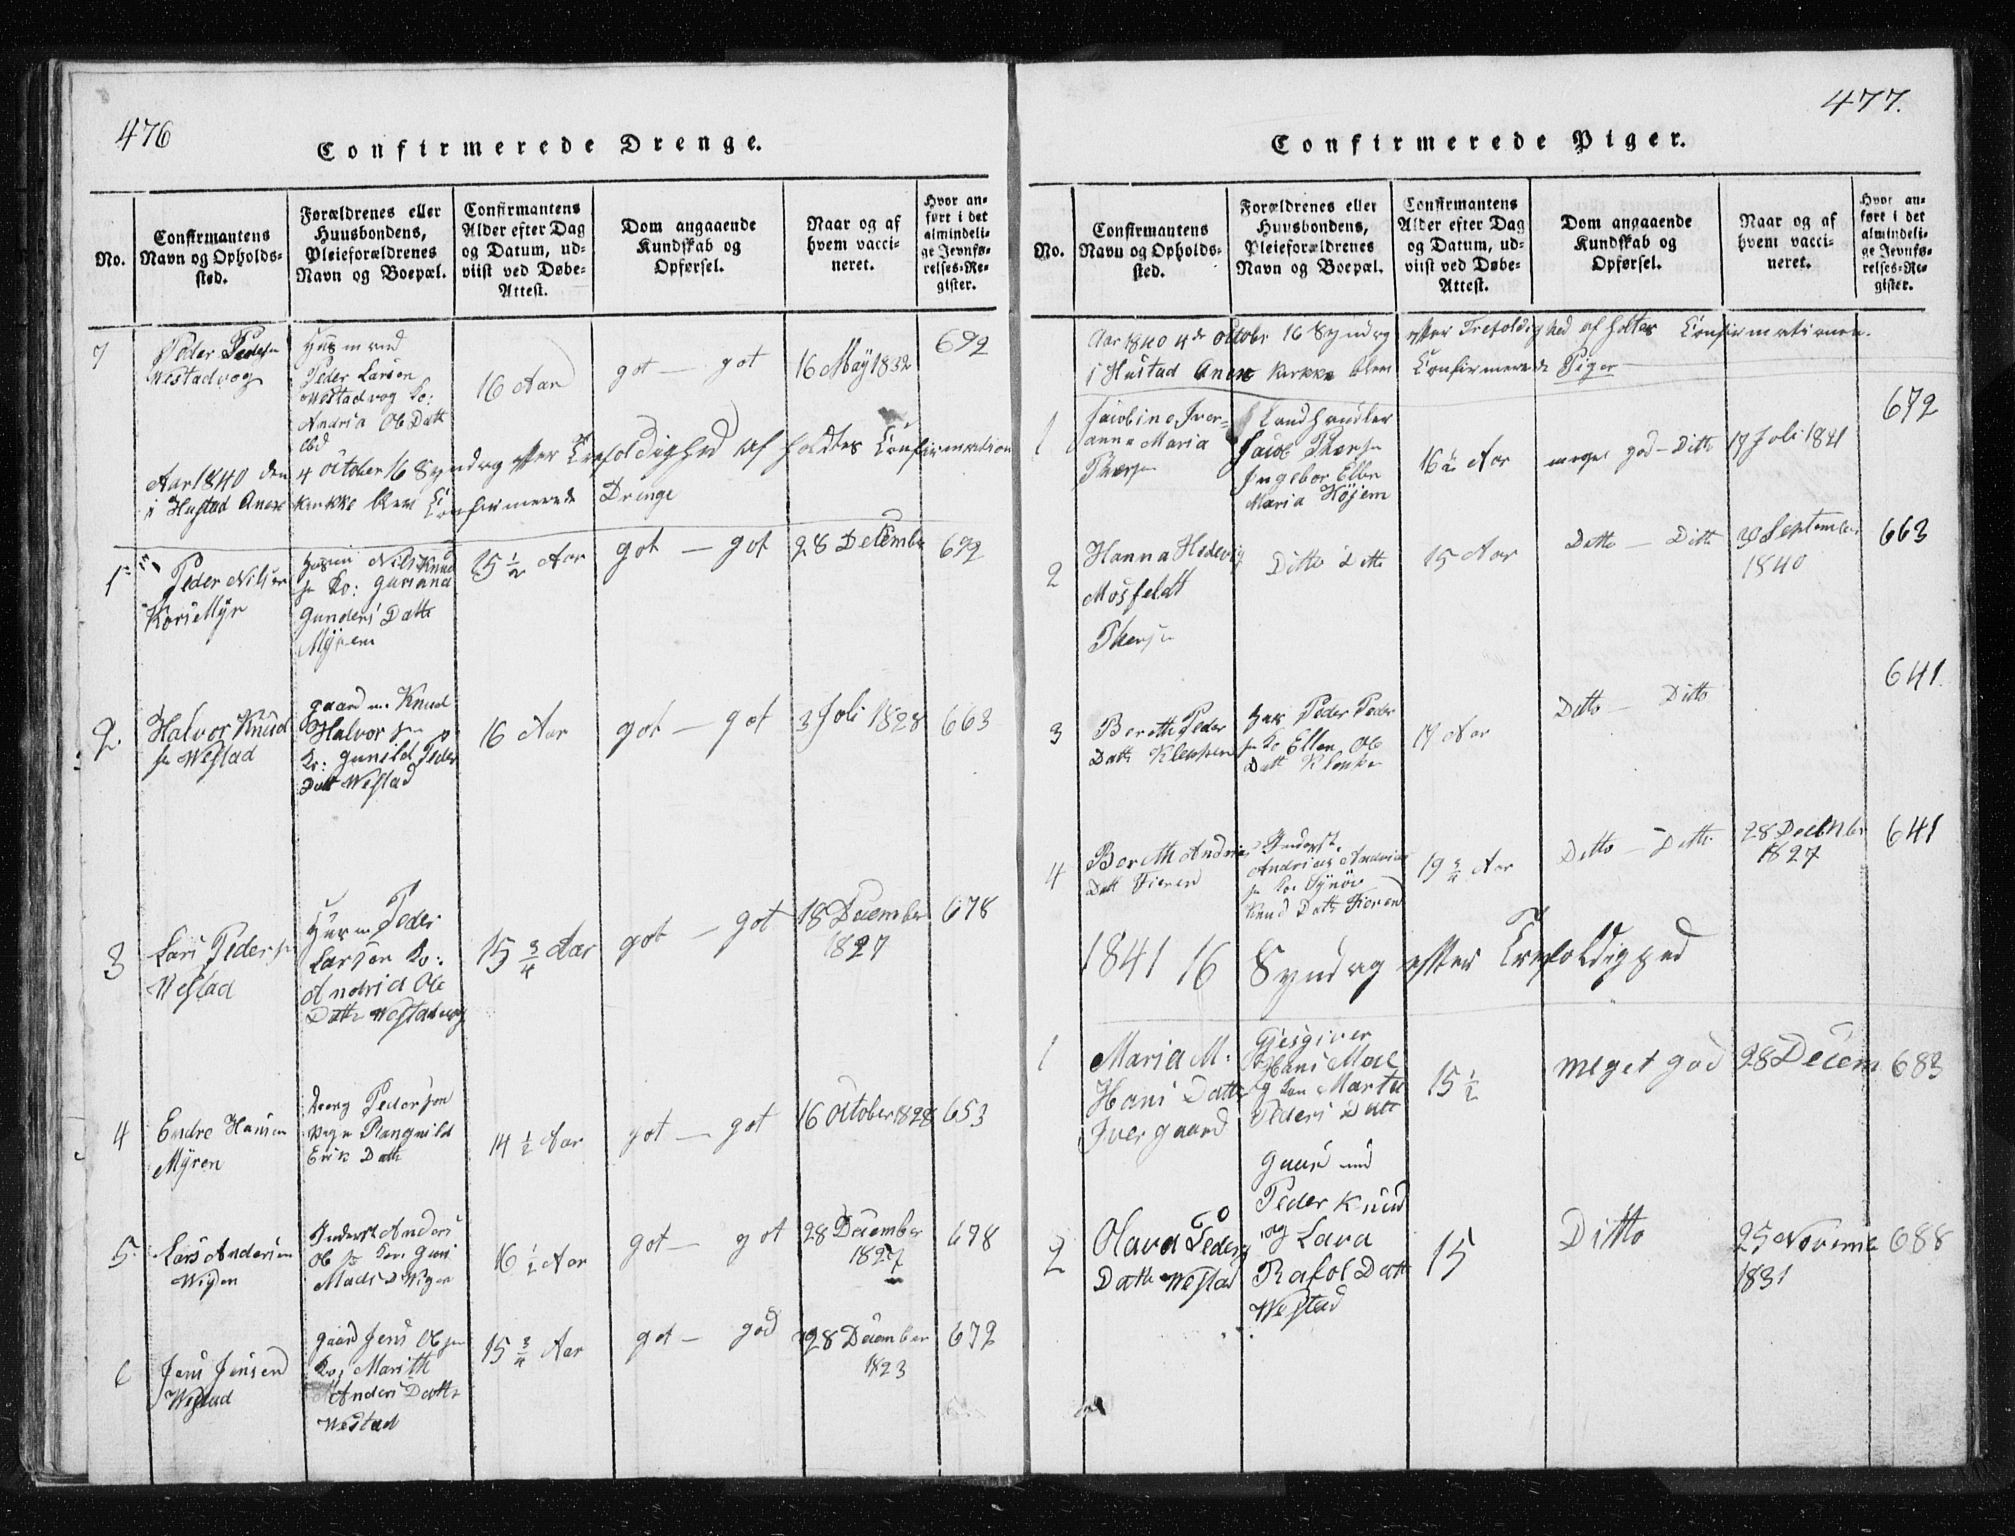 476
Confirmerede Drenge.
No.
Confirmantens
Navn og Opholds-
sted.
Forældrenes eller
Huusbondens,
Pleieforældrenes
Navn og Boepæl.
Confirmantens
Alder efter Dag
og Datum, ud-
viist ved Døbe-
Attest.
Dom angaaende
Kundskab og
Opførsel.
Naar og af
hvem vacci-
neret.
Hvor an-
ført i det
almindeli-
ge Jevnfø-
relses-Re-
gister.
7
Peder Peders
Westadvog
Husmand
Peder Larsen
Westadvog Ko:
Andria Ol Datt
16 Aar
got — got
16 May 1832
692
Aar 1840 den 4 October 16 Syndag efter Trefoldighed af holdtes Confirmation
i Hustad Anex kirkke blev Confirmerede Drenge
1
Peder Nilsen
Korsmyr
Nils Knud
sn Ko: Guriana
Gunders Datt
Myren
15 1/2 Aar
got — got
28 December
692
2.
Halvor Knud
sn Westad
gaardm. Knud
Halvor sn
Ko: Gunild Peder
Datt Westad
16 Aar
got — got
3 Joli 1828
663
3
Lars Peder sn
Westad
Husm Peder
Larsen Ko:
Andria Ol
Datt Westadvog
15 3/4 Aar
got — got
18 December
1827
678
4
Endre Hansen
Myren
Pederson
Rangnild
Erik Datt
14 1/2 Aar
got — got
16 October 1828
653
5.
Lars Andersen
Wigen
Inderst Anders
Ol sn Kon Guri
Mads D Wigen
16 1/2 Aar
got — got
28 December
1827
678
6
Jens Jensen
Westad
gaard Jens Ol sn
Ko; Marith
Anders Datt
Westad
15 3/4 Aar
got — god
28 December
1823
672
477.
Confirmerede Piger.
No.
Confirmantens
Navn og Opholds-
sted.
Forældrenes eller
Huusbondens,
Pleieforældrenes
Navn og Boepæl.
Confirmantens
Alder efter Dag
og Datum, ud-
viist ved Døbe-
Attest.
Dom angaaende
Kundskab og
Opførsel.
Naar og af
hvem vacci-
neret.
Hvor an-
ført i det
almindeli-
ge Jevnfø-
relses-Re-
gister.
Aar 1840 4de Octobr 16 Syndag efter Trefoldighed af holtes Confirmationen
i Hustad Anex kirkke blev Confirmerede Piger
1
Jacobine Iver-
anna Maria
Thersn
Landhandler
Jacob Thersn
Ingebor Ellen
Maria Højem
16 1/2 Aar
meget god — Ditto
17 Joli 1841
672
2
Hanna Hedevig
Mosfeldt
Thersn
Ditto Ditto
15 Aar
Ditto — Ditto
30 September
1840
663
3
Bereth Peder
Datt Kleppen
Peder Peder
sn Ko Ellen Ol
Datt Kleppen
17 Aar
Ditto — Ditto
641
4
Bereth Andrias
Datt Fieren
Inderst.
Andrias Andrias
sn Ko: Synöv
Knud Datt Fieren
19 3/4 Aar
Ditto — Ditto
28 December
1827
641
1841 16 Syndag efter Trefoldighed
1
Maria M.
Hans Datt
Ivergaard
Gjesgiver
Hans Moe
og Kon Marta
Peders Datt
15 1/2
meget god
28 Decem
683
2
Olava Peders
Datt Westad
Gaardmd
Peder Knud
og Lava
Rafol Datt
Westad
15
Ditto
25 Novemb
1831
688